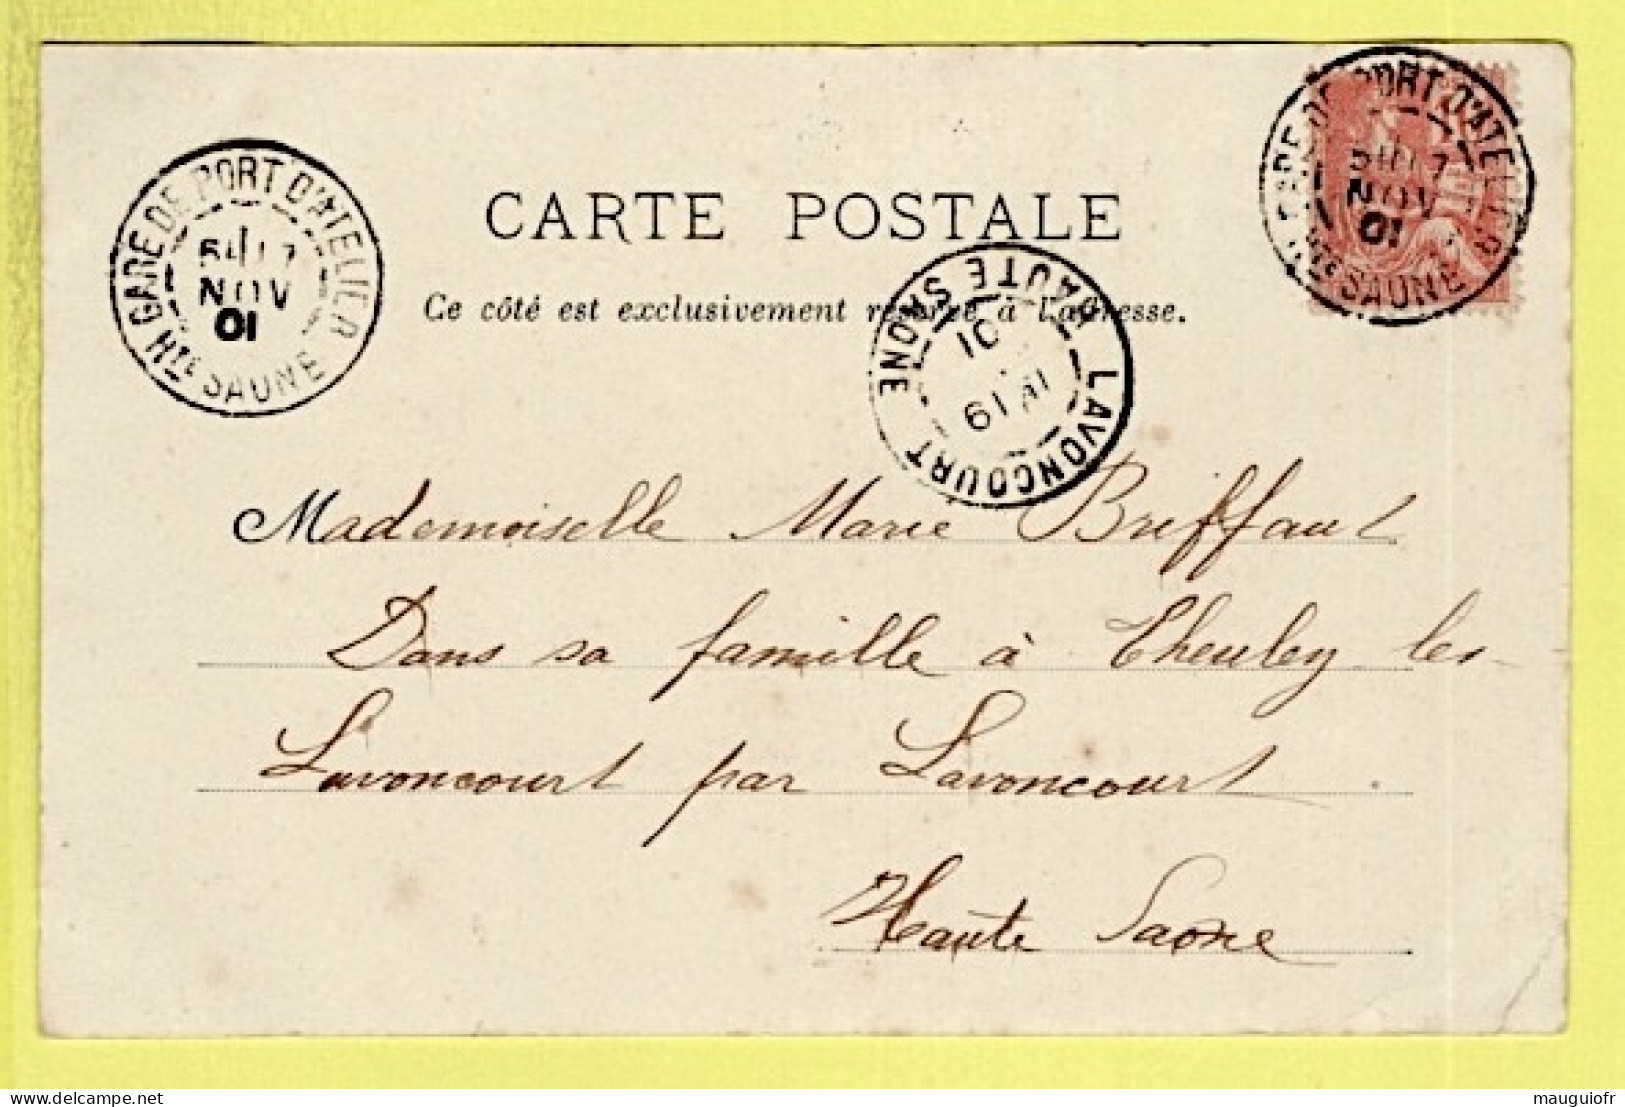 GARE DE PORT D'ATELIER
NOV
01
Hte SAONE
CARTE POSTALE
Ce côté est exclusivement réservé à l'adresse.
GARE DE PORT D'ATELIER
NOV
01
Hte SAONE
LAVONCOURT HAUTE SAONE
01
Mademoiselle Marie Briffaut
Dans sa famille à Theuley les
Lavoncourt par Lavoncourt
Haute Saone
delcampe.net
mauguiofr